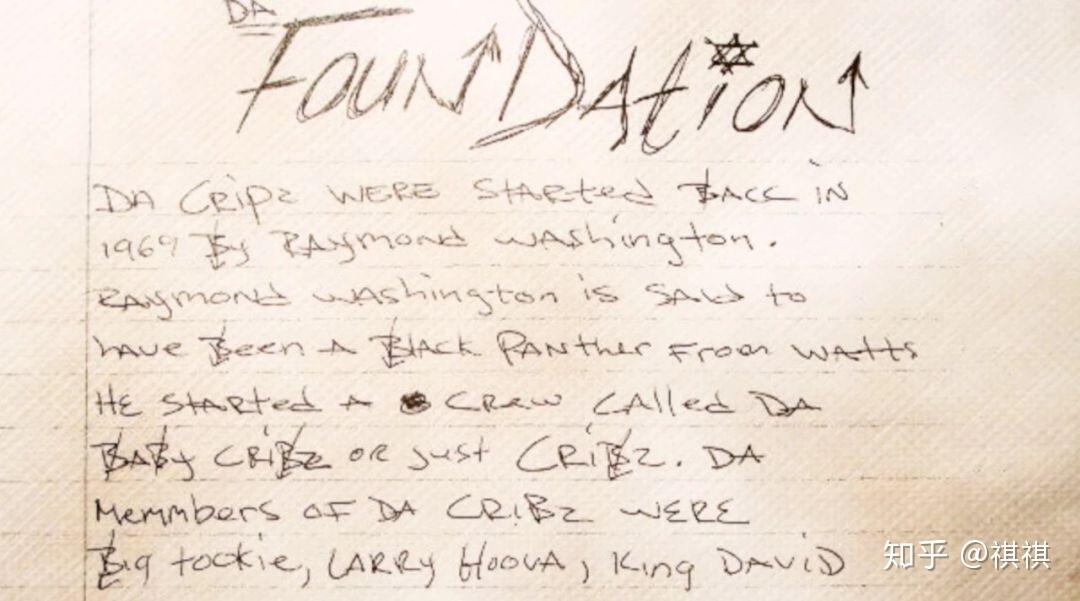 DA
FounDAtion
DA Cripz WERE StARtED BACC iN
1969 By RAymonD WAshington.
RAymonD WAshington is SAiD to
have Been A BlAck PANther From WAtts
HE StARtED A CREW CAllED DA
BABy CRiBz or just CRiBz. DA
Memmbers OF DA CRiBz WERE
Big tookie, LARRy HoovA, King DAViD
知乎 @祺祺